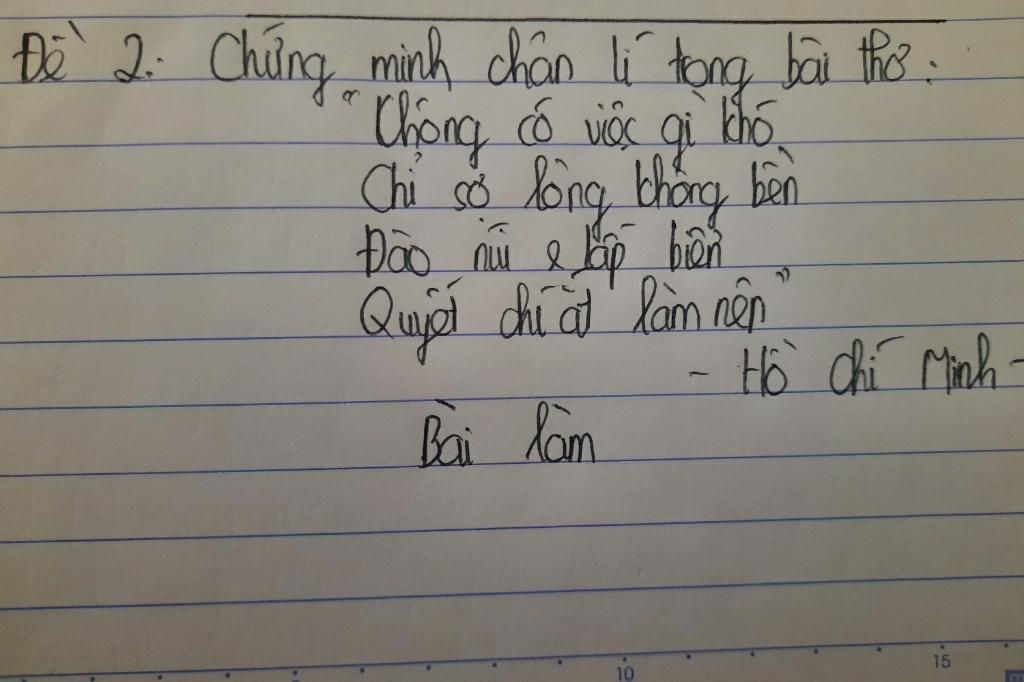 Đề 2: Chứng minh chân lí tong bài thơ:
"Không có việc gì khó
Chỉ sợ lòng không bền
Đào núi & lấp biển
Quyết chí ắt làm nên"
- Hồ Chí Minh -
Bài làm
10 15